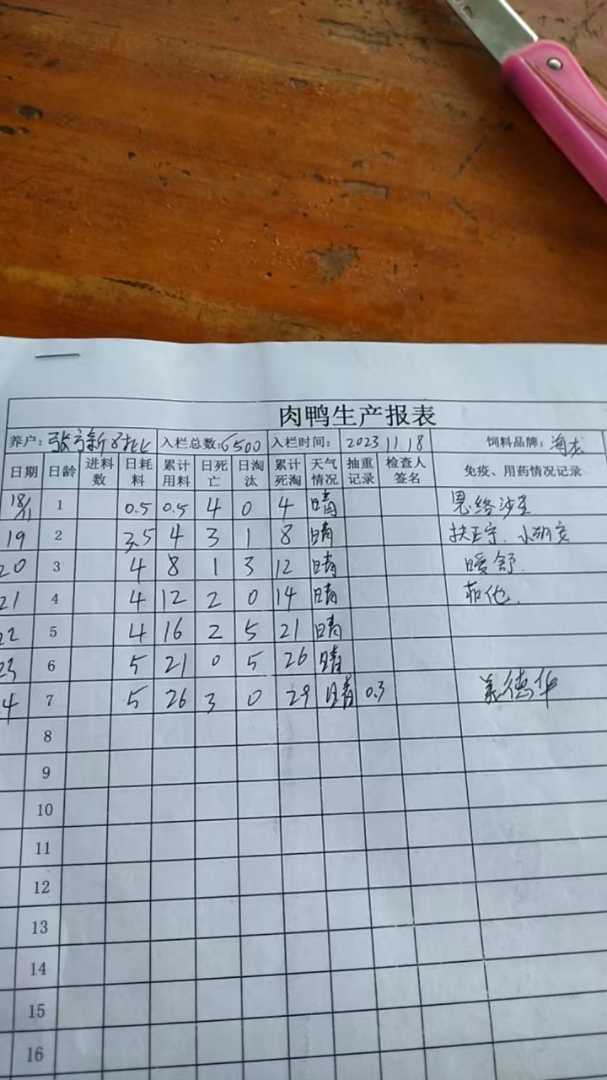 肉鸭生产报表
养户: 入栏总数: 6500 入栏时间: 2023 11 18 饲料品牌:
日期 日龄 进料数 日耗料 累计用料 日死亡 日淘汰 累计死淘 天气情况 抽重记录 检查人签名 免疫、用药情况记录
18/11 1 0.5 0.5 4 0 4 晴 恩络沙星
19 2 3.5 4 3 1 8 晴
20 3 4 8 1 3 12 晴 暖舒
21 4 4 12 2 0 14 晴
22 5 4 16 2 5 21 晴
23 6 5 21 0 5 26 晴
4 7 5 26 3 0 29 晴 0.3 美德华
8
9
10
11
12
13
14
15
16